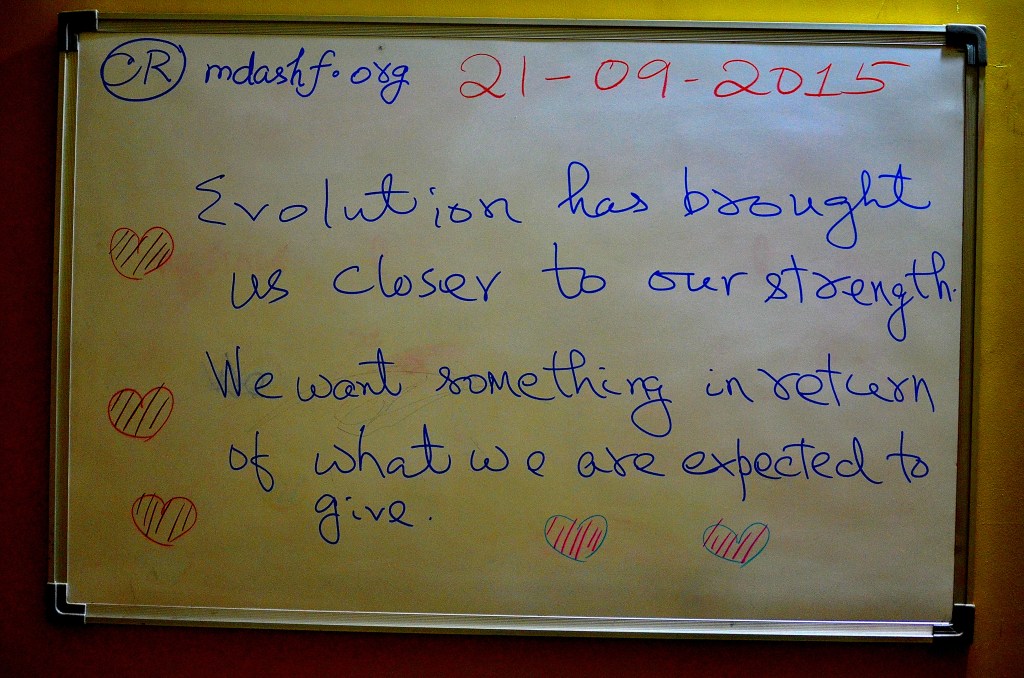 CR mdashf.org 21-09-2015
Evolution has brought
us closer to our strength.
We want something in return
of what we are expected to
give.